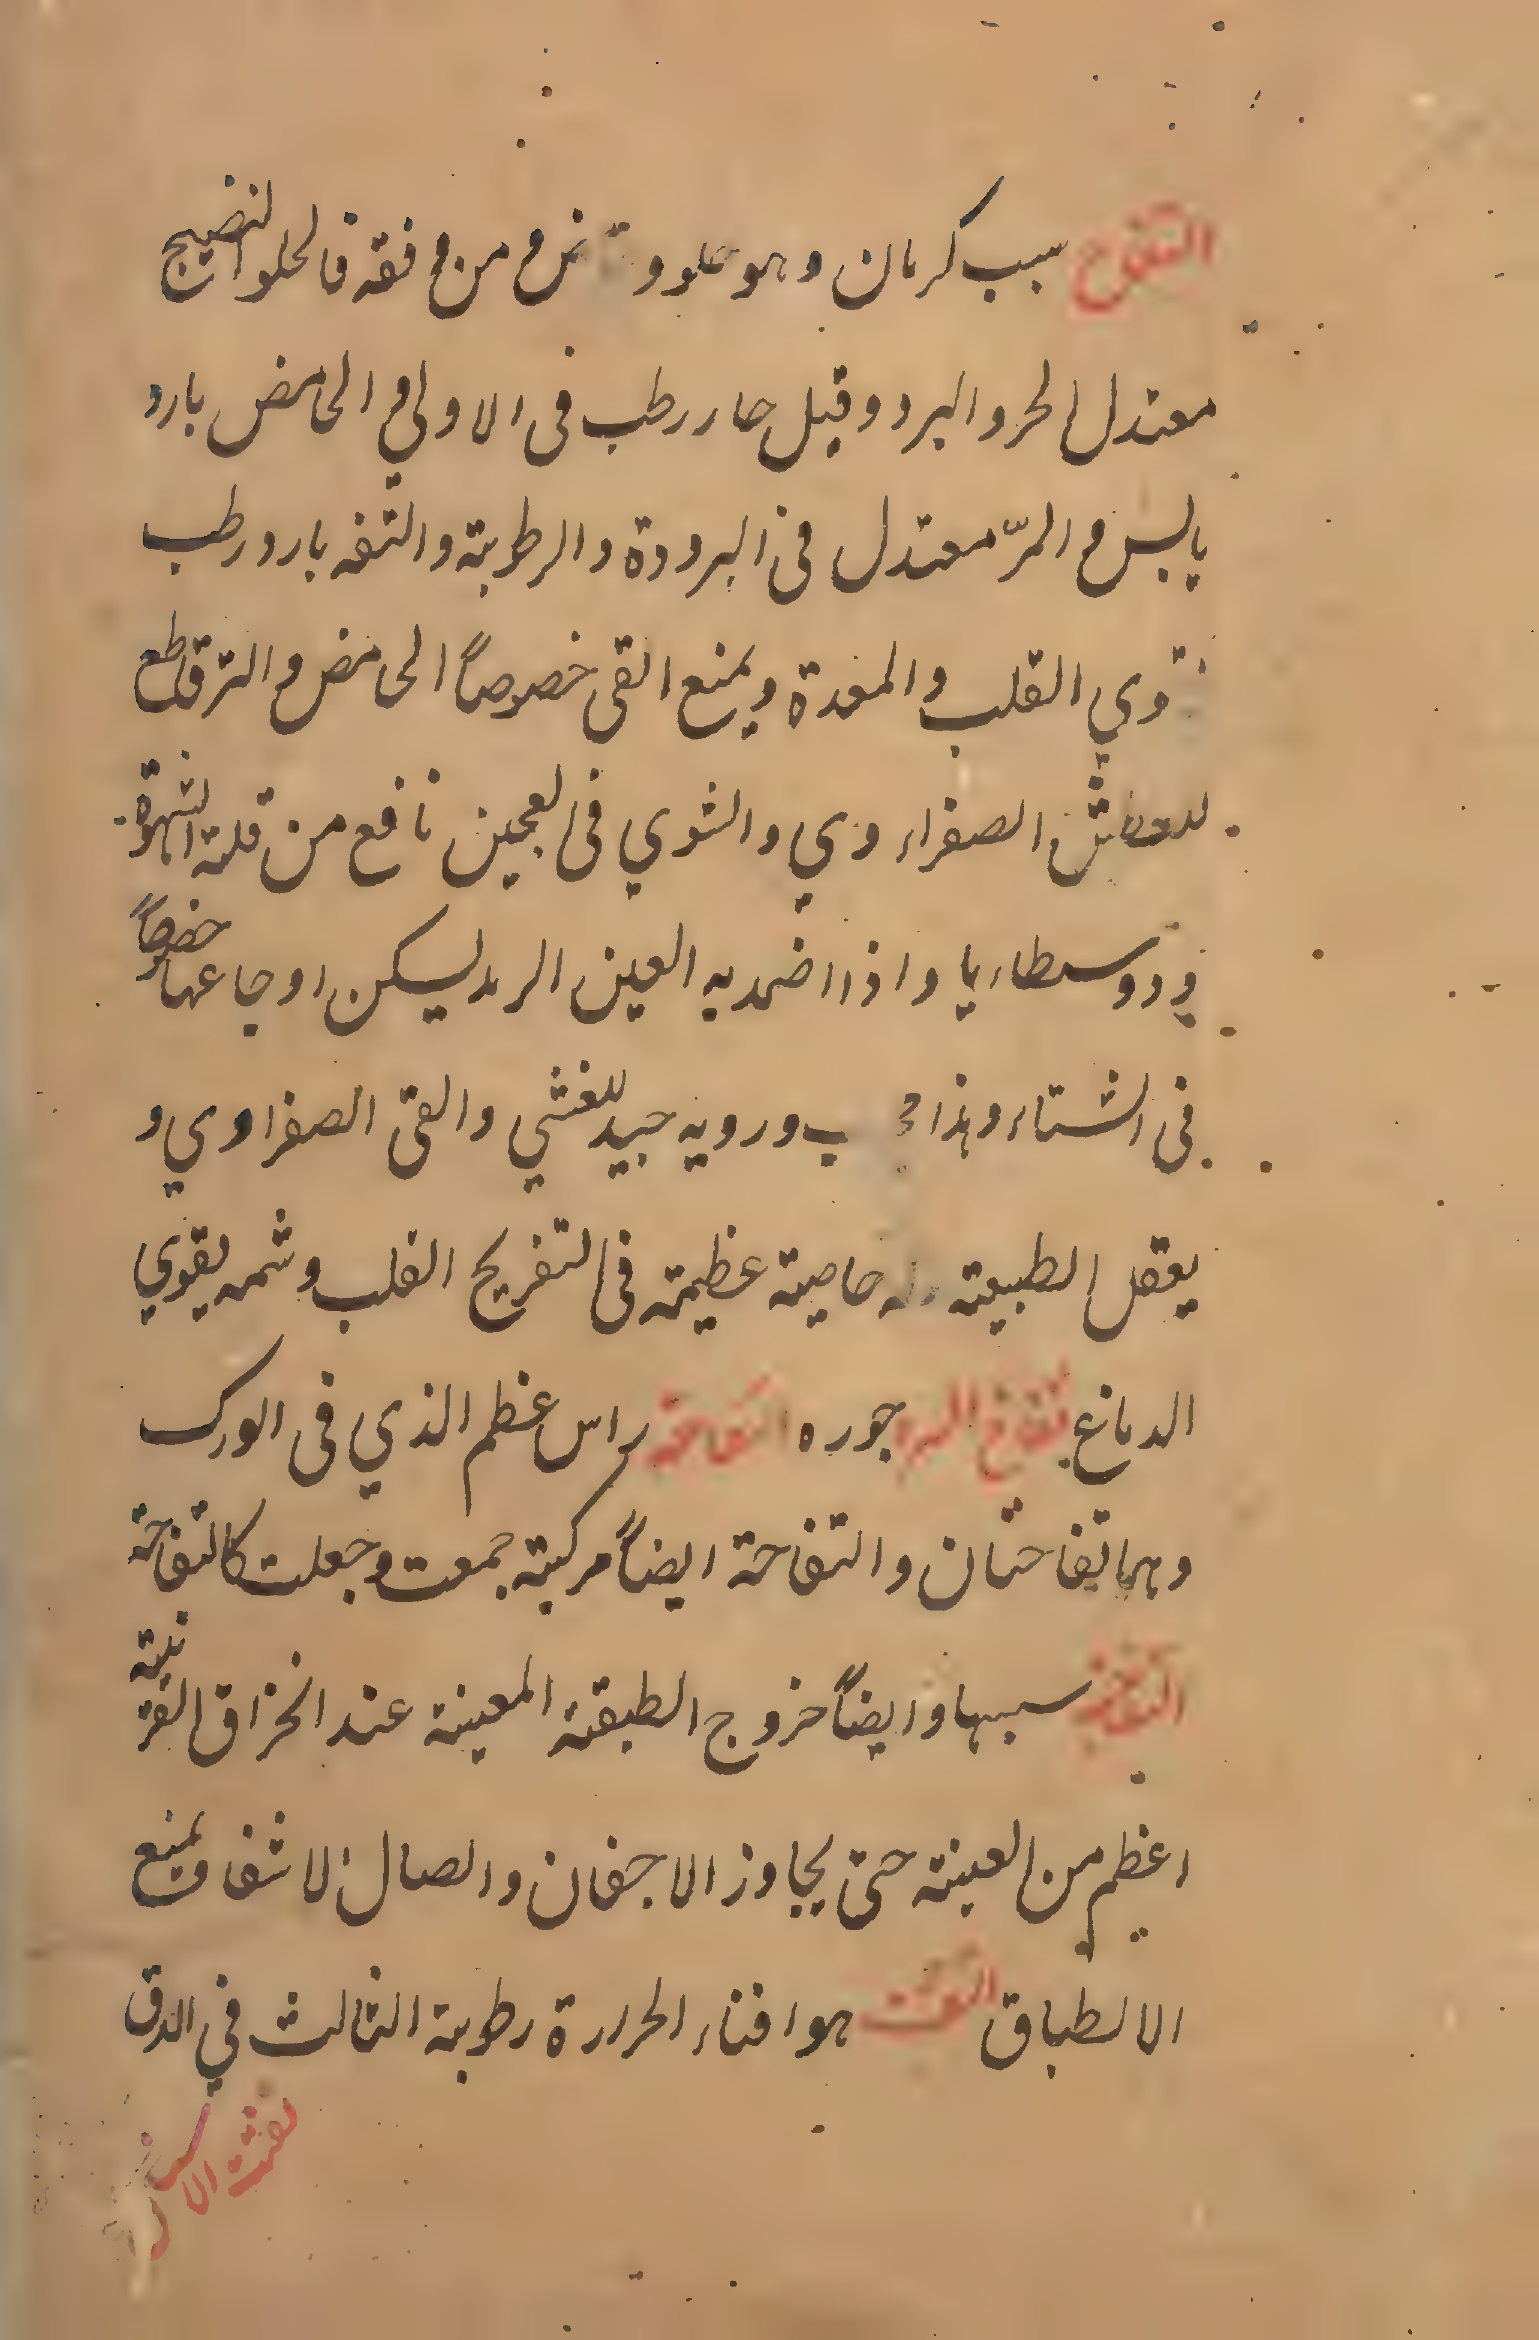 التفاح سيب كرمان وهو حلو و من و من و فقه فالحلو النضيج
معتدل الحر والبرد وقيل حار رطب فى الاولى والحامض بارد
يابس والمرّ معتدل فى البرودة والرطوبة والتفه بارد رطب
القلب والمعدة ويمنع القى خصوصاً الحامض و قاطع
للعطش الصفراوي والشوي فى العجين نافع من قلة الشهوة
و دوسنطاريا واذا اضمد به العين الرمد ليسكن اوجاعها خصوصاً
فى الشتاء وهذا وروبه جيد للغشي والقئ الصفراوي و
يعقل الطبيعة وله خاصية عظيمة فى التفريح القلب وشمه يقوي
الدماغ تفاح البر جوره التفاحة راس عظم الذي فى الورك
وهما تفاحتان والتفاحة ايضاً مركبة جمعت وجعلت كالتفاحة
سببها وايضاً خروج الطبقة المعينة عند انخراق القرنية
اعظم من العينة حتى يجاوز الاجفان والصال الاشفار ويمنع
الانطباق التفتت هو افناء الحرارة رطوبة الثالث في الدق
تفتت